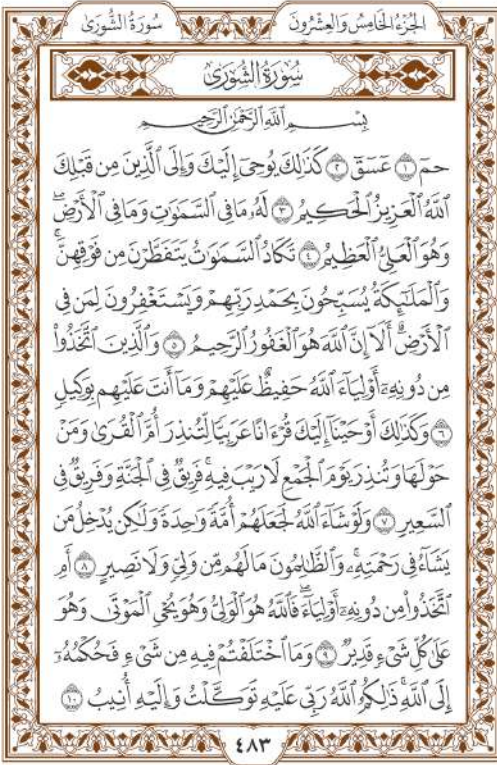 الجُزْءُ الخَامِسُ وَالعِشْرُونَ سُورَةُ الشُّورَىٰ
سُورَةُ الشُّورَىٰ
بِسْمِ اللَّهِ الرَّحْمَٰنِ الرَّحِيمِ
حمٓ ١ عٓسٓقٓ ٢ كَذَٰلِكَ يُوحِىٓ إِلَيْكَ وَإِلَى ٱلَّذِينَ مِن قَبْلِكَ
ٱللَّهُ ٱلْعَزِيزُ ٱلْحَكِيمُ ٣ لَهُۥ مَا فِى ٱلسَّمَٰوَٰتِ وَمَا فِى ٱلْأَرْضِۖ
وَهُوَ ٱلْعَلِىُّ ٱلْعَظِيمُ ٤ تَكَادُ ٱلسَّمَٰوَٰتُ يَتَفَطَّرْنَ مِن فَوْقِهِنَّۚ
وَٱلْمَلَٰٓئِكَةُ يُسَبِّحُونَ بِحَمْدِ رَبِّهِمْ وَيَسْتَغْفِرُونَ لِمَن فِى
ٱلْأَرْضِۗ أَلَآ إِنَّ ٱللَّهَ هُوَ ٱلْغَفُورُ ٱلرَّحِيمُ ٥ وَٱلَّذِينَ ٱتَّخَذُوا۟
مِن دُونِهِۦٓ أَوْلِيَآءَ ٱللَّهُ حَفِيظٌ عَلَيْهِمْ وَمَآ أَنتَ عَلَيْهِم بِوَكِيلٍ
٦ وَكَذَٰلِكَ أَوْحَيْنَآ إِلَيْكَ قُرْءَانًا عَرَبِيًّا لِّتُنذِرَ أُمَّ ٱلْقُرَىٰ وَمَنْ
حَوْلَهَا وَتُنذِرَ يَوْمَ ٱلْجَمْعِ لَا رَيْبَ فِيهِۚ فَرِيقٌ فِى ٱلْجَنَّةِ وَفَرِيقٌ فِى
ٱلسَّعِيرِ ٧ وَلَوْ شَآءَ ٱللَّهُ لَجَعَلَهُمْ أُمَّةً وَٰحِدَةً وَلَٰكِن يُدْخِلُ مَن
يَشَآءُ فِى رَحْمَتِهِۦۚ وَٱلظَّٰلِمُونَ مَا لَهُم مِّن وَلِىٍّ وَلَا نَصِيرٍ ٨ أَمِ
ٱتَّخَذُوا۟ مِن دُونِهِۦٓ أَوْلِيَآءَۖ فَٱللَّهُ هُوَ ٱلْوَلِىُّ وَهُوَ يُحْىِ ٱلْمَوْتَىٰ وَهُوَ
عَلَىٰ كُلِّ شَىْءٍ قَدِيرٌ ٩ وَمَا ٱخْتَلَفْتُمْ فِيهِ مِن شَىْءٍ فَحُكْمُهُۥٓ
إِلَى ٱللَّهِۚ ذَٰلِكُمُ ٱللَّهُ رَبِّى عَلَيْهِ تَوَكَّلْتُ وَإِلَيْهِ أُنِيبُ ١٠
٤٨٣